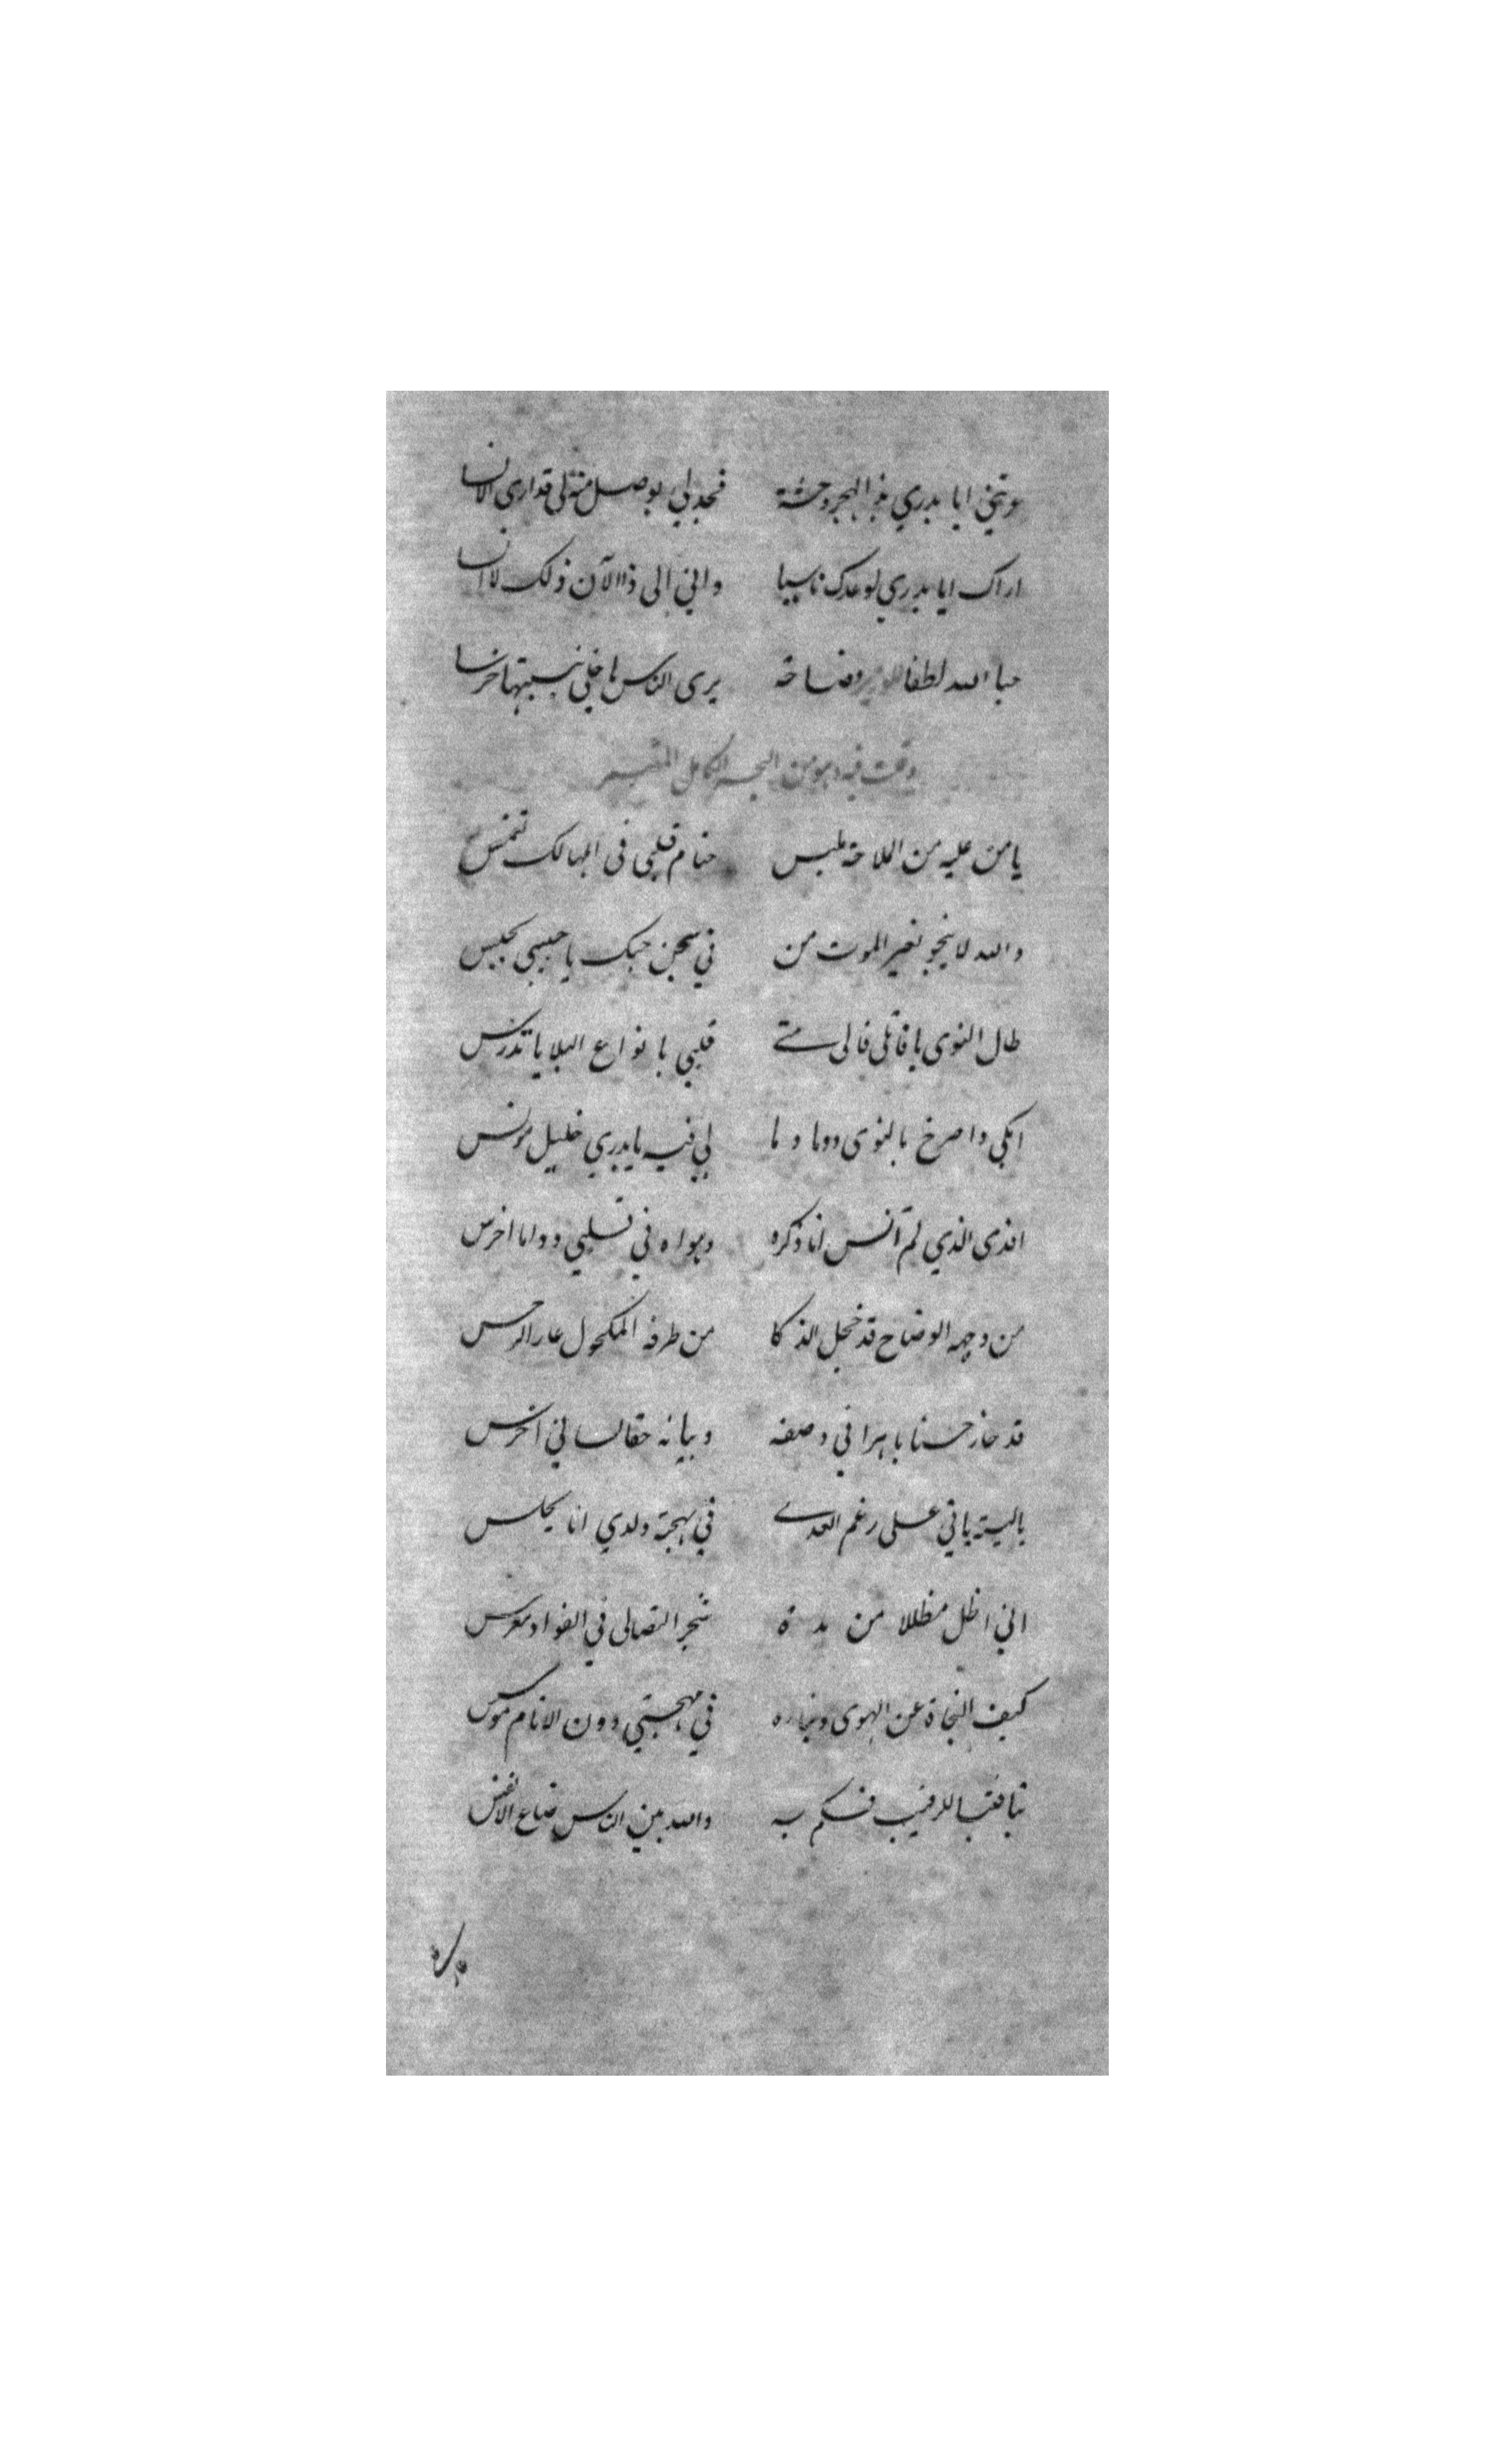 عوتني ايا بدري بذا الهجر وحشة فجد لي بوصل منة لى قد ارى الانسا
اراك ايا بدري لوعدك ناسيا واني الى ذا الآن ذلك لا انسا
حبا الله لطفا فصاحة يرى الناس ما خلي بنسبتها خرسا
وقلت فيه وهو من البحر الكامل
يا من عليه من الملاحة ملبس حتام قلبي في المهالك تغمس
والله لا ينجو بغير الموت من في سجن حبك يا حبيبي يحبس
طال النوى يا قاتلى فالى متى قلبي بانواع البلايا تدرس
ابكى واصرخ بالنوى دوما وما لي فيه يا بدري خليل مونس
افدى الذي لم آنس انا ذكره وهواه في قلبي دواما اخرس
من وجهه الوضاح قد خجل الذكا من طرفه المكحول عار النرجس
قد حاز حسنا باهرا في وصفه وبيانه حقا لساني اخرس
يا ليته ياتي على رغم العدى في بهجة ولدي انا يجلس
اني اظل مظللا من شجر التصابى في الفواد مغرس
كيف النجاة عن الهوى ونجاره في مهجتي دون الانام موسس
تبا فتبا للرقيب فكم به والله بين الناس ضاع الانفس